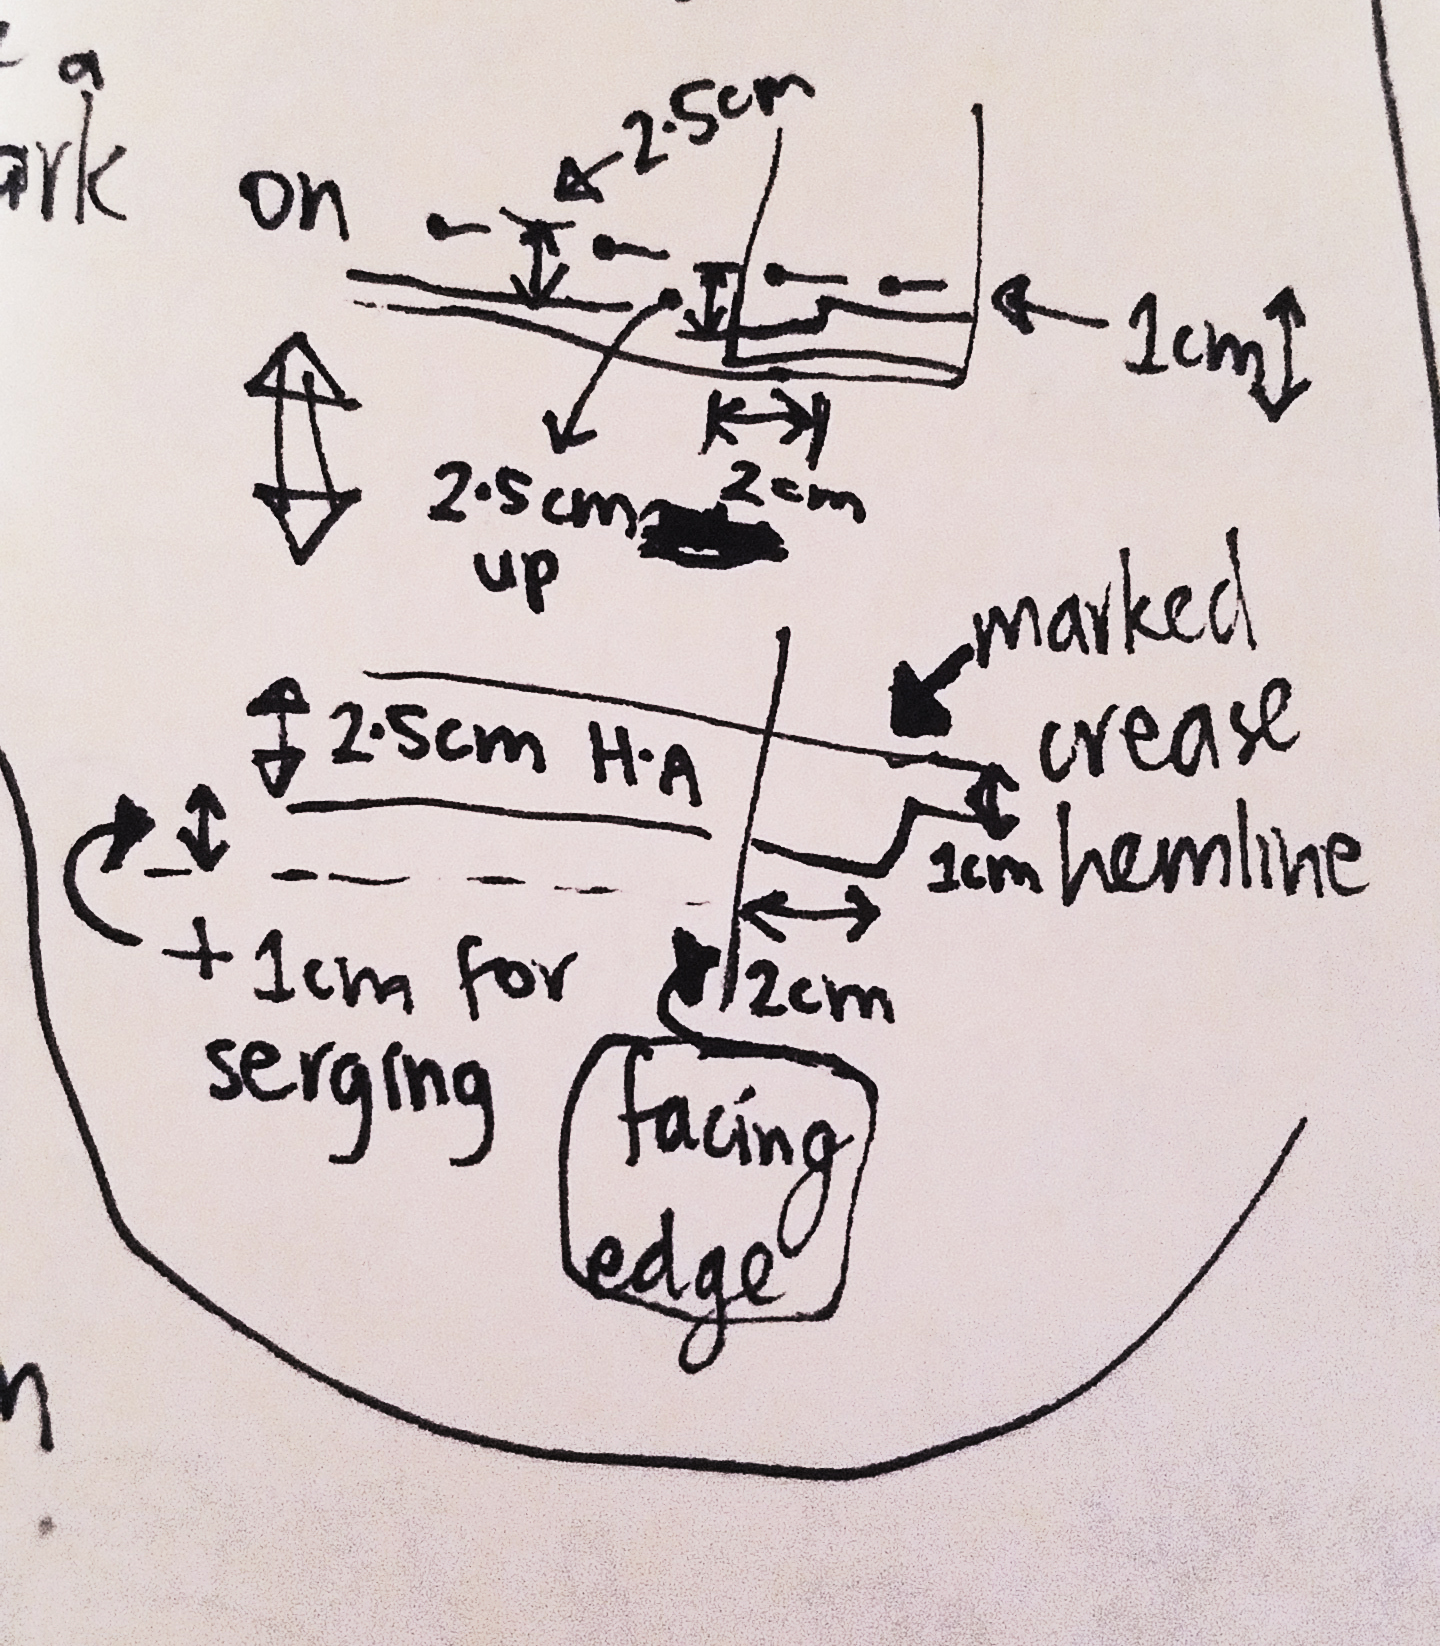 a
ark
on
2.5cm
1cm
2.5cm
up
2cm
marked
crease
hemline
2.5cm H.A
1cm
2cm
+ 1cm for
serging
facing
edge
n